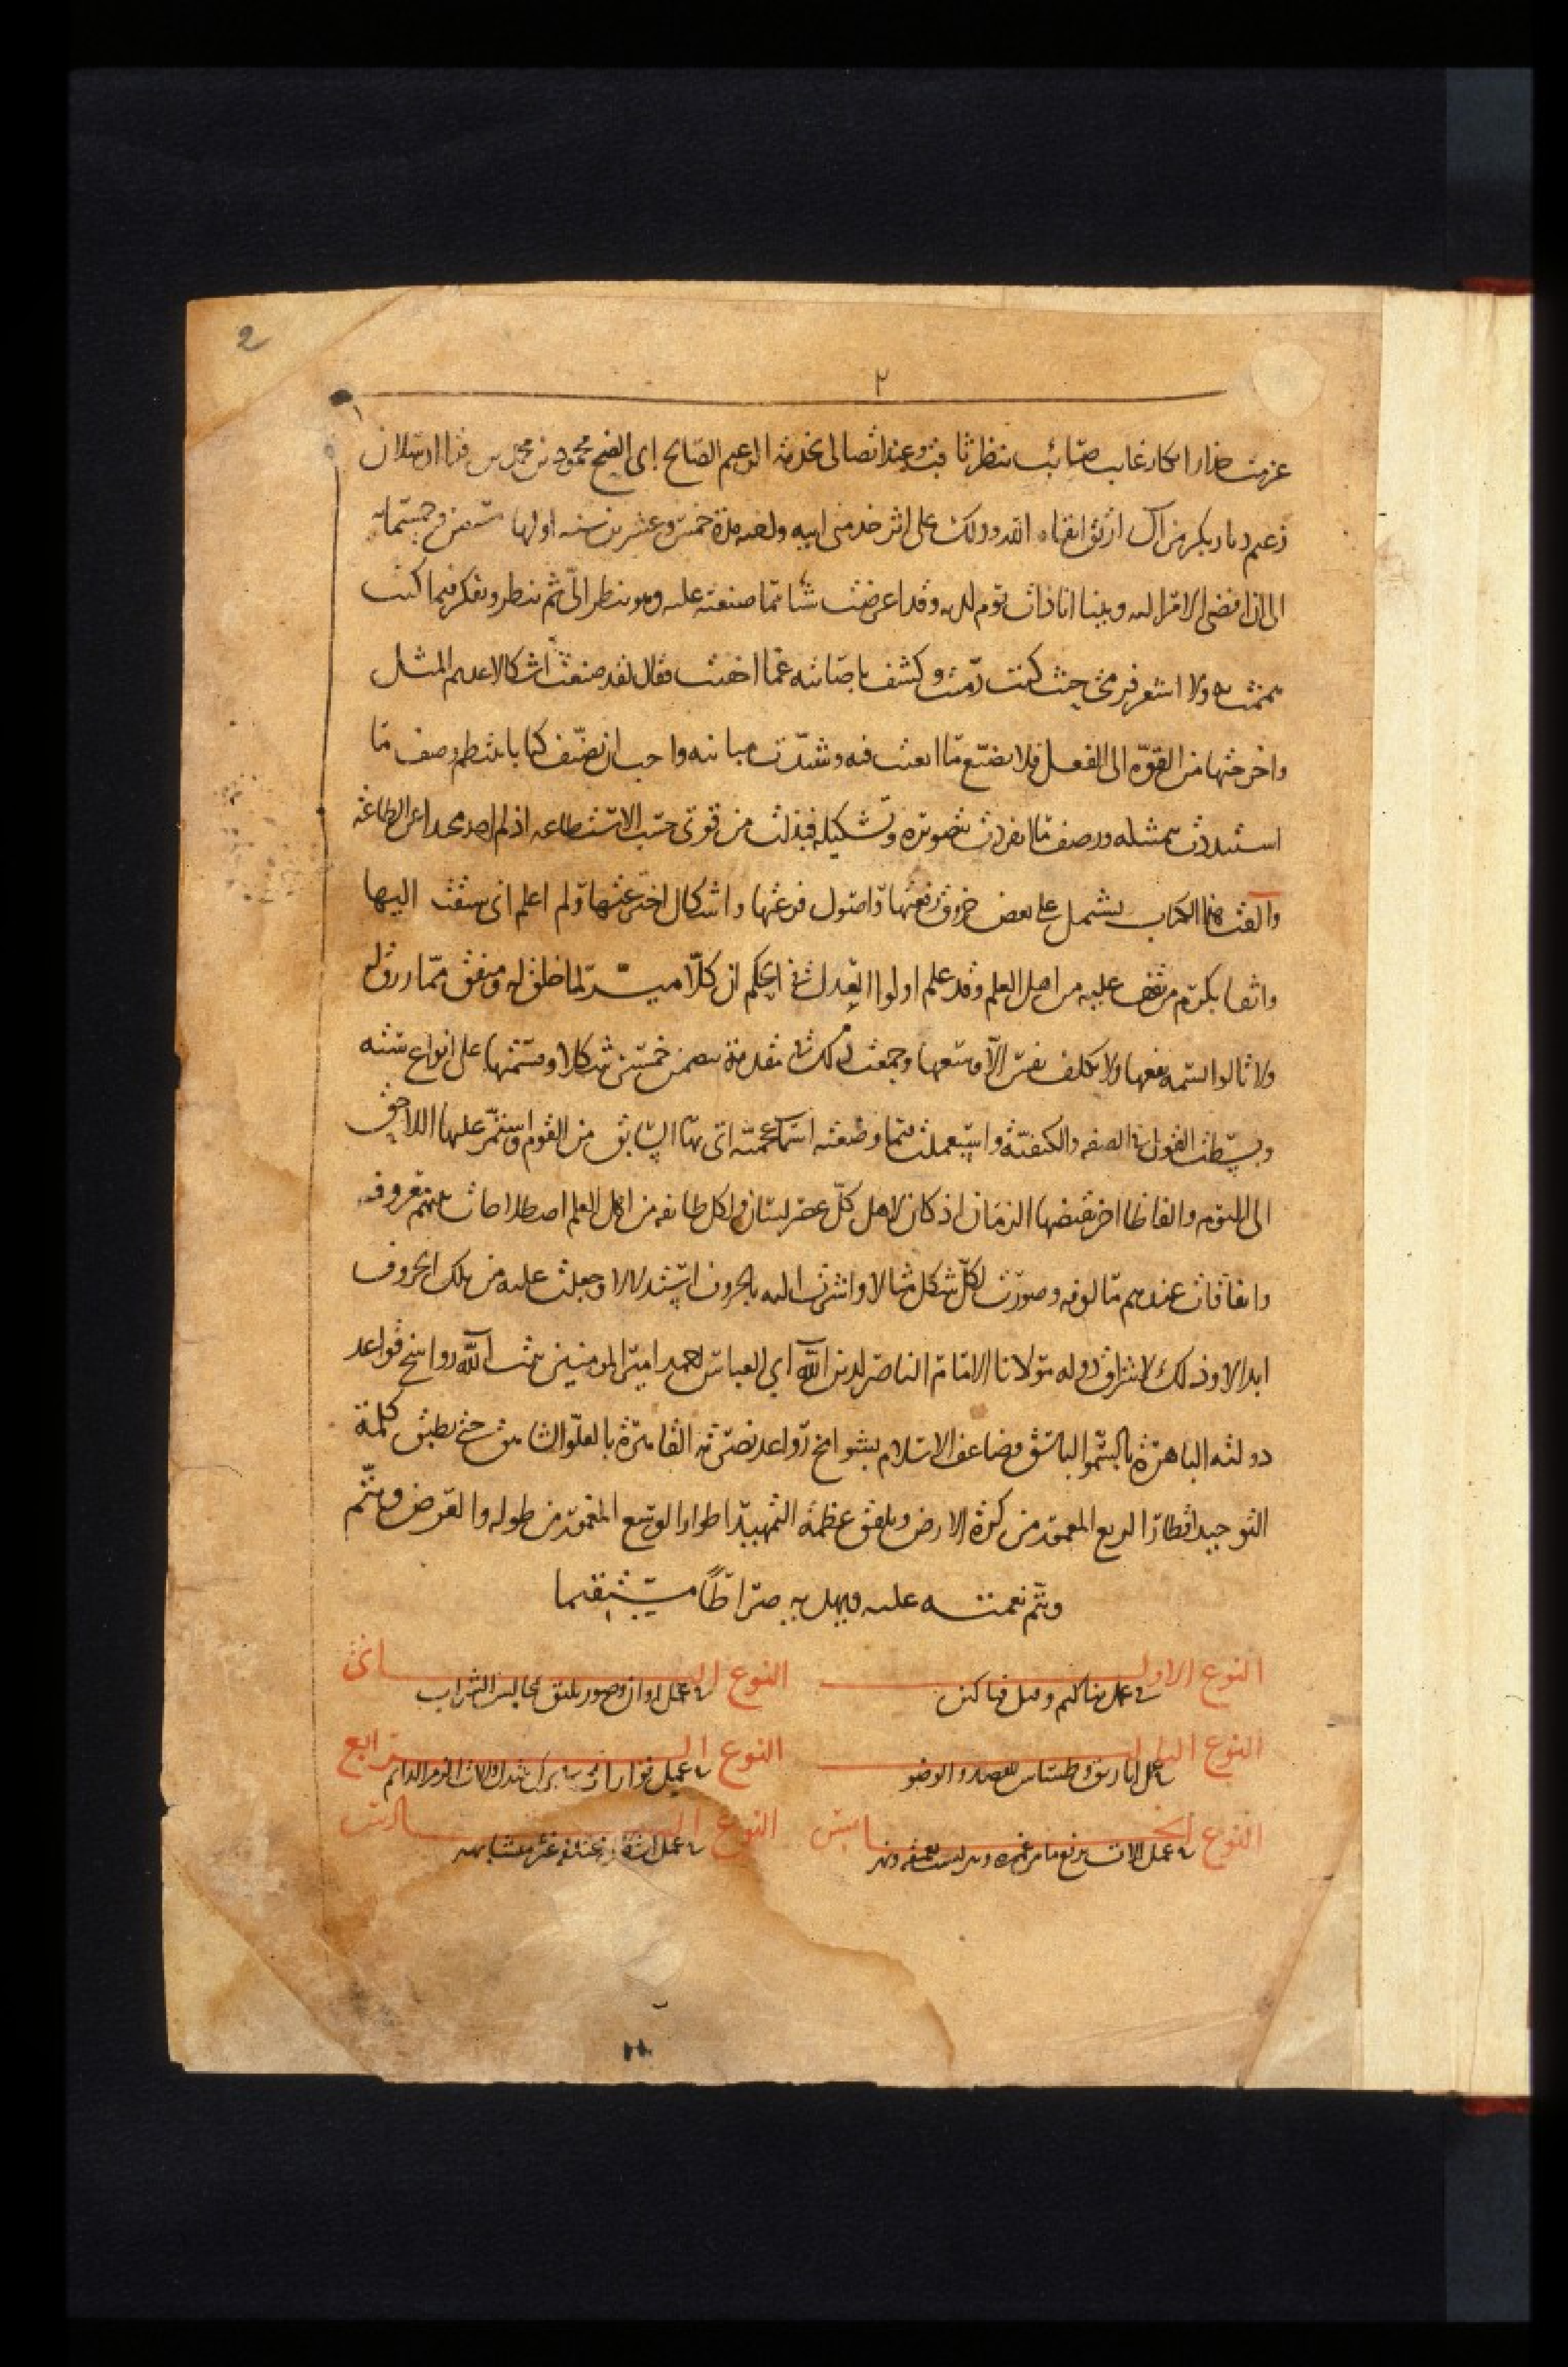 2
٢
عزمت حذارا نكار غايب صائب بنظر ثاقب وعند اتصالى بخدمة الملك الصالح ابى الفتح محمود بن محمد بن قرا ارسلان
زعيم ديار بكر من آل ارتق ابقاه الله وذلك على اثر خدمتى ابيه واخيه مدة خمس وعشرين سنة اولها سنة سبعين وخمسمائة
الى ان افضى الامر اليه وبينا انا ذات يوم لديه وقد اعرضت شيئا مما صنعته عليه وهو ينظر الىّ ثم ينظر ويفكر فيما كنت
هممت به ولا اشعر فرمى حيث كنت رميت وكشف باصابته عما اخفيت فقال لقد صنعت اشكالا عديمة المثل
واخرجتها من القوة الى الفعل فلا تضيع ما اتعبت فيه وشيدت مبانيه واحب ان تصنف كتابا ينتظم وصف ما
استبددت بتمثيله ووصف ما انفردت بتصويره وتشكيله فبذلت من قوتى حسب الاستطاعة اذ لم اجد محيدا عن الطاعة
والفت هذا الكتاب يشتمل على بعض خروق رقعتها واصول فرعتها واشكال اخترعتها ولم اعلم انى سبقت اليها
واثقا بكرم من يقف عليه من اهل العلم وقد علم اولوا العدل فى الحكم ان كلا ميسر لما خلق له ومنفق مما رزق له
ولا تالوا النسمة نفعها ولا يكلف نفس الا وسعها وجمعت لذلك مقدمة تتضمن خمسين شكلا وقسمتها على انواع ستة
وبسطت القول فى الصفة والكيفية واستعملت فيما وضعته اسما عجمية اتى بها السابق من القوم واستمر عليها اللاحق
الى اليوم والفاظا اخر يقتضيها الزمان اذ كان لاهل كل عصر لسان ولكل طائفة من اهل العلم اصطلاحات بينهم معروفة
واتفاقات عندهم مالوفة وصورت لكل شكل مثالا واشرت اليه بالحروف استدلالا وجعلت عليه من تلك الحروف
ابدالا وذلك لاشراق دولة مولانا الامام الناصر لدين الله ابى العباس احمد امير المومنين ثبت الله رواسخ قواعد
دولته الباهرة بالسمو الباسق وضاعف الاسلام بشوامخ رواعد نصرته القاهرة بالعلو الشاهق حتى يطبق كلمة
التوحيد اقطار الربع المعمور من كرة الارض ويلفق عظمة التمهيد اطوار الوسع المغمور من طوله والعرض ويتم
ويتم نعمته عليه ويهديه صراطا مستقيما
النوع الاول فى عمل بناكيم وفيل فناكين
النوع الثانى فى عمل اوان وصور يليق بمجالس الشراب
النوع الثالث فى عمل اباريق وطساس للفصد والوضو
النوع الرابع فى عمل فوارات فى برك تتبدل والات الزمر الدايم
النوع الخامس فى عمل الات ترفع ما من غمرة وبير ليست بعميقة ونهر
النوع السادس فى عمل اشكال مختلفة غير متشابهة